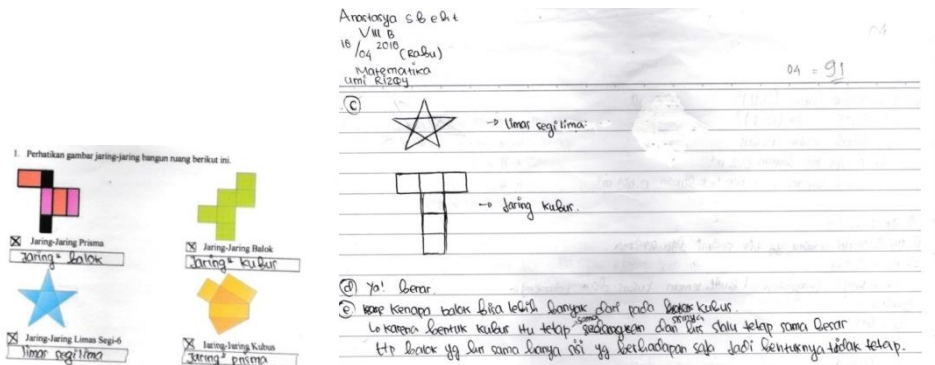 1. Perhatikan gambar jaring-jaring bangun ruang berikut ini.
Jaring-Jaring Prisma
Jaring² balok
Jaring-Jaring Balok
Jaring² kubus
Jaring-Jaring Limas Segi-6
limas segi lima
Jaring-Jaring Kubus
Jaring² prisma
VIII B
16/04 2018 (Rabu)
Matematika
Umi Rizqy
04 = 91
c
→ limas segi lima
→ Jaring kubus.
d ya! benar.
e Kenapa balok bisa lebih banyak dari pada kubus.
karena bentuk kubus itu tetap sama sedangkan dan sisinya slalu tetap sama besar
ttp balok yg sama hanya sisi yg berhadapan saja Jadi bentuknya tidak tetap.